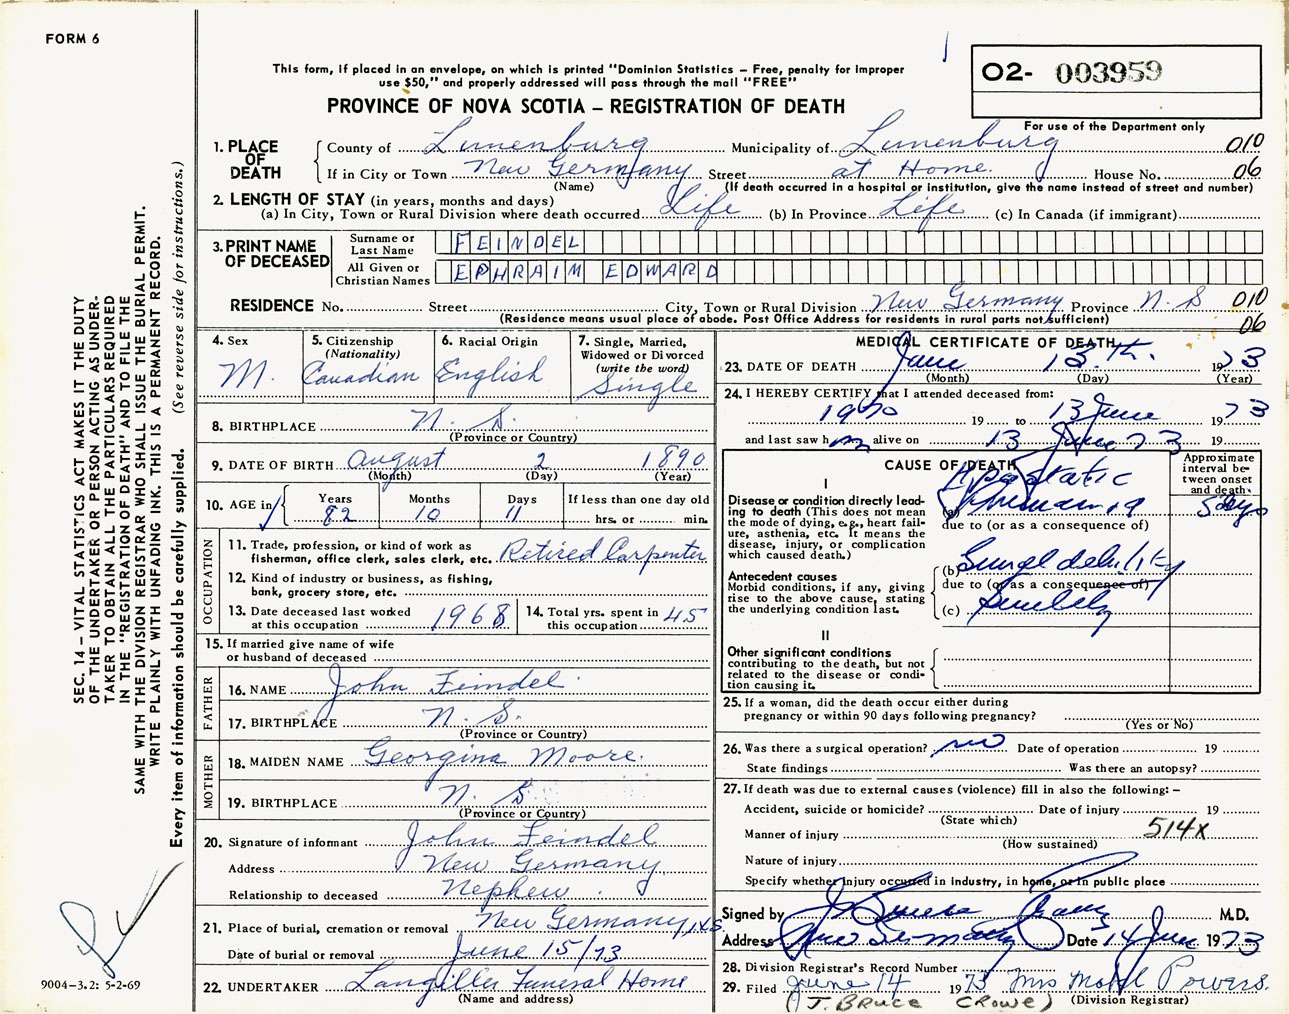 FORM 6
This form, if placed in an envelope, on which is printed "Dominion Statistics – Free, penalty for improper
use $50," and properly addressed will pass through the mail "FREE"
PROVINCE OF NOVA SCOTIA – REGISTRATION OF DEATH
02- 003959
For use of the Department only
1. PLACE OF DEATH
County of Lunenburg Municipality of Lunenburg 010
If in City or Town New Germany Street at Home. House No. 06
(Name) (If death occurred in a hospital or institution, give the name instead of street and number)
2. LENGTH OF STAY (in years, months and days)
(a) In City, Town or Rural Division where death occurred Life (b) In Province Life (c) In Canada (if immigrant)
3. PRINT NAME OF DECEASED
Surname or Last Name FEINDEL
All Given or Christian Names EPHRAIM EDWARD
RESIDENCE No. Street City, Town or Rural Division New Germany Province N. S 010
(Residence means usual place of abode. Post Office Address for residents in rural parts not sufficient) 06
4. Sex M.
5. Citizenship (Nationality) Canadian
6. Racial Origin English
7. Single, Married, Widowed or Divorced (write the word) Single
8. BIRTHPLACE N. S.
(Province or Country)
9. DATE OF BIRTH August 2 1890
(Month) (Day) (Year)
10. AGE in Years 82 Months 10 Days 11 If less than one day old hrs. or min.
OCCUPATION
11. Trade, profession, or kind of work as
fisherman, office clerk, sales clerk, etc. Retired Carpenter
12. Kind of industry or business, as fishing,
bank, grocery store, etc.
13. Date deceased last worked
at this occupation 1968
14. Total yrs. spent in
this occupation 45
15. If married give name of wife
or husband of deceased
FATHER
16. NAME John Feindel
17. BIRTHPLACE N. S.
(Province or Country)
MOTHER
18. MAIDEN NAME Georgina Moore.
19. BIRTHPLACE N. S
(Province or Country)
20. Signature of informant John Feindel
Address New Germany
Relationship to deceased Nephew.
21. Place of burial, cremation or removal New Germany, N.S.
Date of burial or removal June 15/73
22. UNDERTAKER Langilles Funeral Home
(Name and address)
MEDICAL CERTIFICATE OF DEATH
23. DATE OF DEATH June 13th. 1973
(Month) (Day) (Year)
24. I HEREBY CERTIFY that I attended deceased from:
1970 19 to 13 June 1973
and last saw him alive on 13 June 73 19
CAUSE OF DEATH
Approximate interval between onset and death
I
Disease or condition directly lead-
ing to death (This does not mean
the mode of dying, e.g., heart fail-
ure, asthenia, etc. It means the
disease, injury, or complication
which caused death.)
(a) Hypostatic Pneumonia 5 days
due to (or as a consequence of)
Antecedent causes
Morbid conditions, if any, giving
rise to the above cause, stating
the underlying condition last.
(b) debility
due to (or as a consequence of)
(c)
II
Other significant conditions
contributing to the death, but not
related to the disease or condi-
tion causing it.
25. If a woman, did the death occur either during
pregnancy or within 90 days following pregnancy?
(Yes or No)
26. Was there a surgical operation? no Date of operation 19
State findings Was there an autopsy?
27. If death was due to external causes (violence) fill in also the following: –
Accident, suicide or homicide? Date of injury 19
(State which)
Manner of injury 514X
(How sustained)
Nature of injury
Specify whether injury occured in industry, in home, or in public place
Signed by J Bruce Crowe M.D.
Address New Germany Date 14 June 1973
28. Division Registrar's Record Number
29. Filed June 14 1973 Mrs Powers.
(J. BRUCE CROWE) (Division Registrar)
SEC. 14 – VITAL STATISTICS ACT MAKES IT THE DUTY
OF THE UNDERTAKER OR PERSON ACTING AS UNDER-
TAKER TO OBTAIN ALL THE PARTICULARS REQUIRED
IN THE "REGISTRATION OF DEATH" AND TO FILE THE
SAME WITH THE DIVISION REGISTRAR WHO SHALL ISSUE THE BURIAL PERMIT.
WRITE PLAINLY WITH UNFADING INK. THIS IS A PERMANENT RECORD.
Every item of information should be carefully supplied. (See reverse side for instructions.)
9004-3.2: 5-2-69